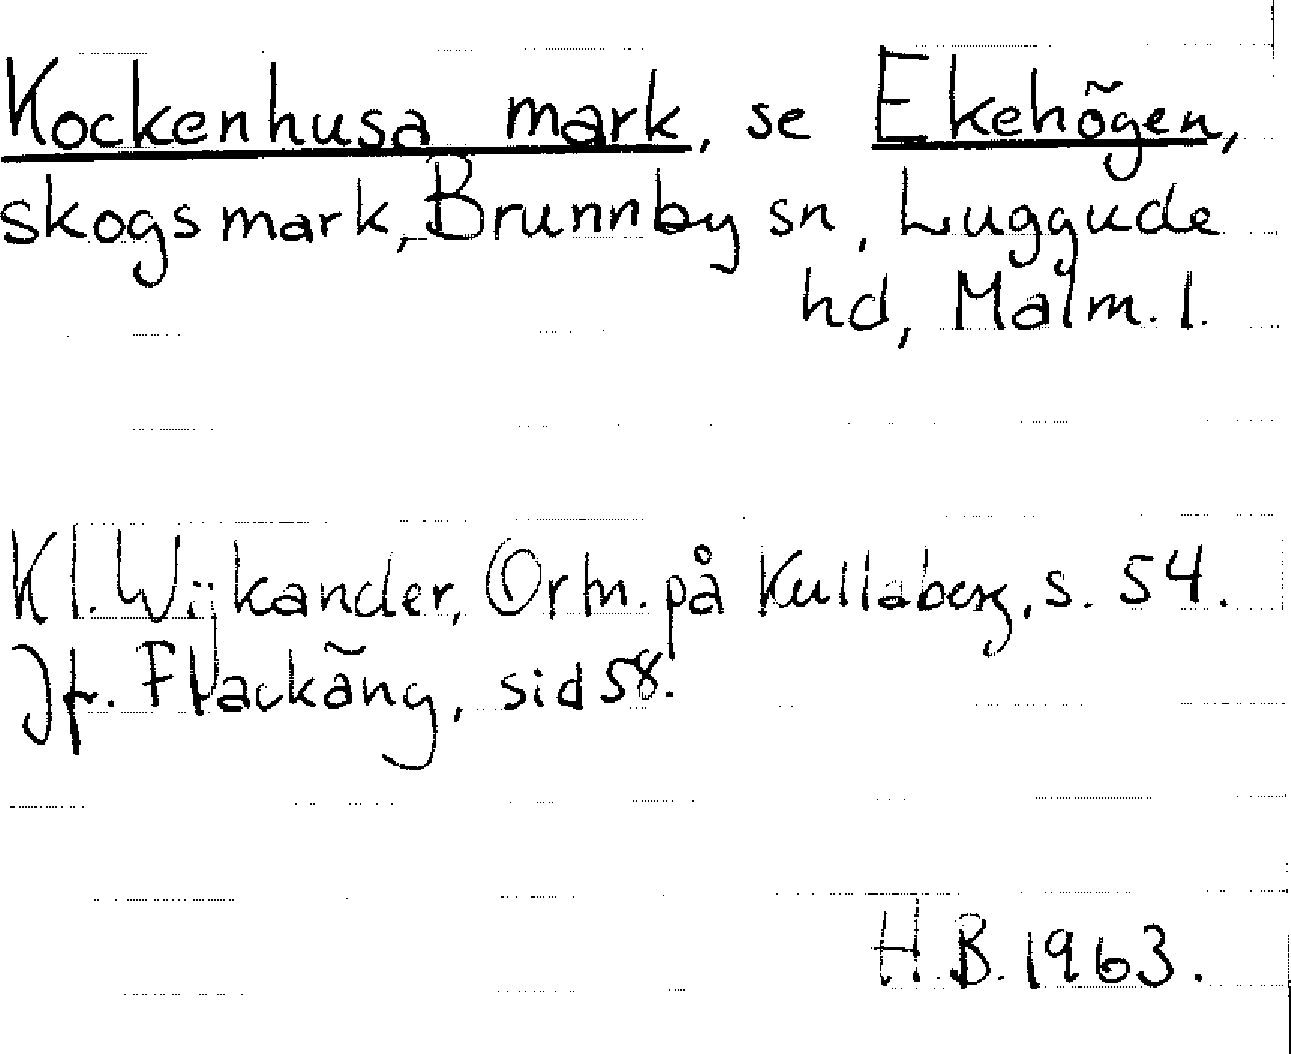 Kockenhusa mark, se Ekehögen,
skogsmark, Brunnby sn, Luggude
hd, Malm. l.
Kl. Wijkander, Ortn. på Kullaberg, s. 54.
Jf. Flackäng, sid 58.
H.B. 1963.